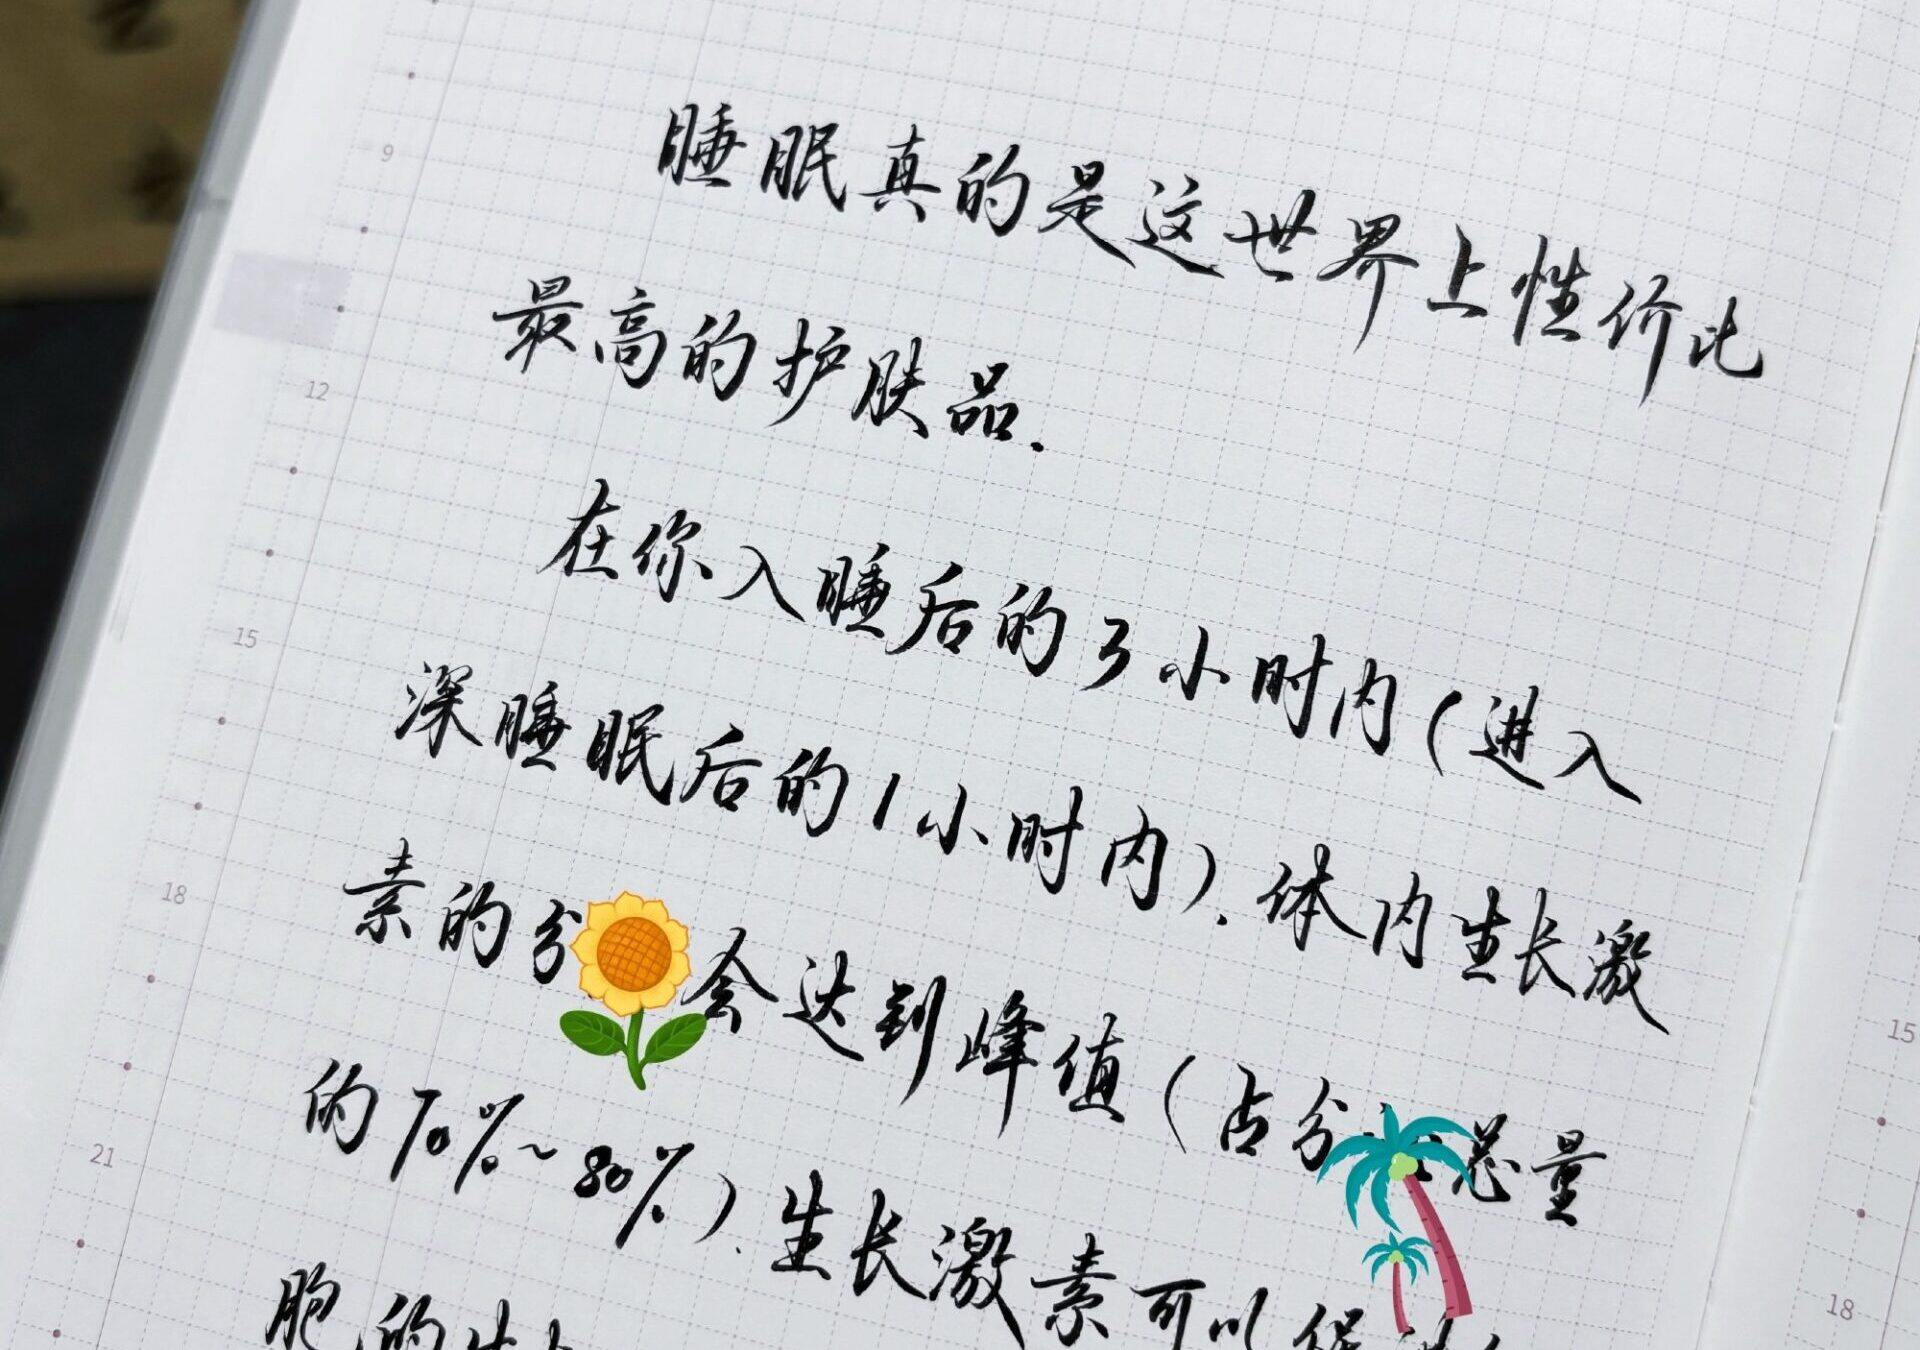 睡眠真的是这世界上性价比
最高的护肤品.
在你入睡后的3小时内(进入
深睡眠后的1小时内).体内生长激
素的分 会达到峰值(占分 总量
的70%~80%).生长激素可以促进
胞的
9
12
15
18
21
15
18